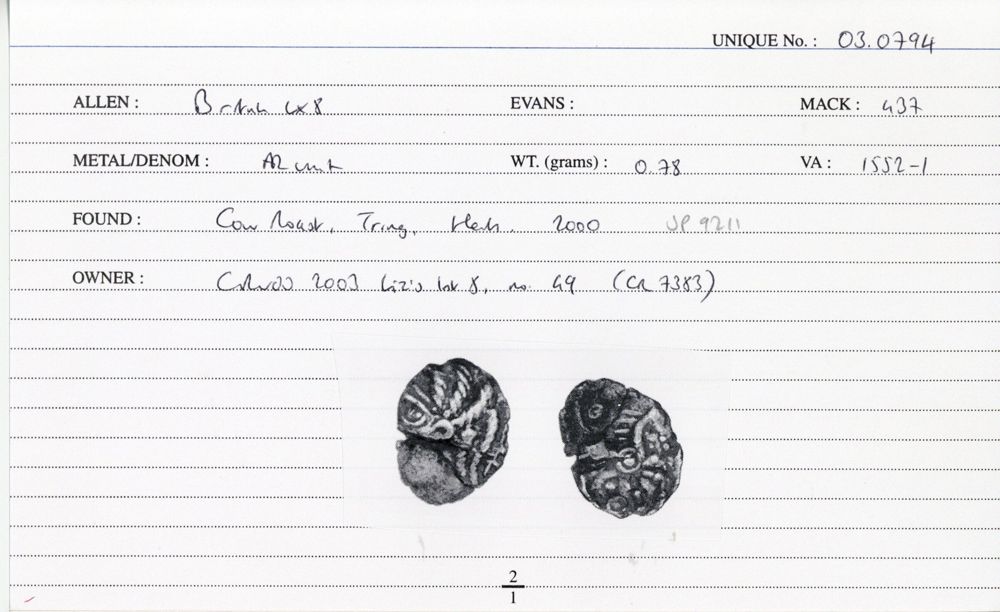 UNIQUE No. : 03.0794
ALLEN : British LX8 EVANS : MACK : 437
METAL/DENOM : AR unit WT. (grams) : 0.78 VA : 1552-1
FOUND : Cow Roast, Tring, Herts. 2000 SP 9211
OWNER : 2003 Liz's list 8, no. 49 (CR 7383)
2
1